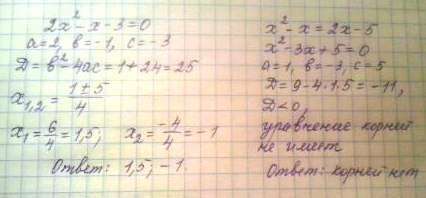 2x² - x - 3 = 0
a = 2, b = -1, c = -3
D = b² - 4ac = 1 + 24 = 25
x₁,₂ = (1 ± 5)/4
x₁ = 6/4 = 1,5; x₂ = -4/4 = -1
Ответ: 1,5; -1.
x² - x = 2x - 5
x² - 3x + 5 = 0
a = 1, b = -3, c = 5
D = 9 - 4·1·5 = -11,
D < 0,
уравнение корней
не имеет
Ответ: корней нет